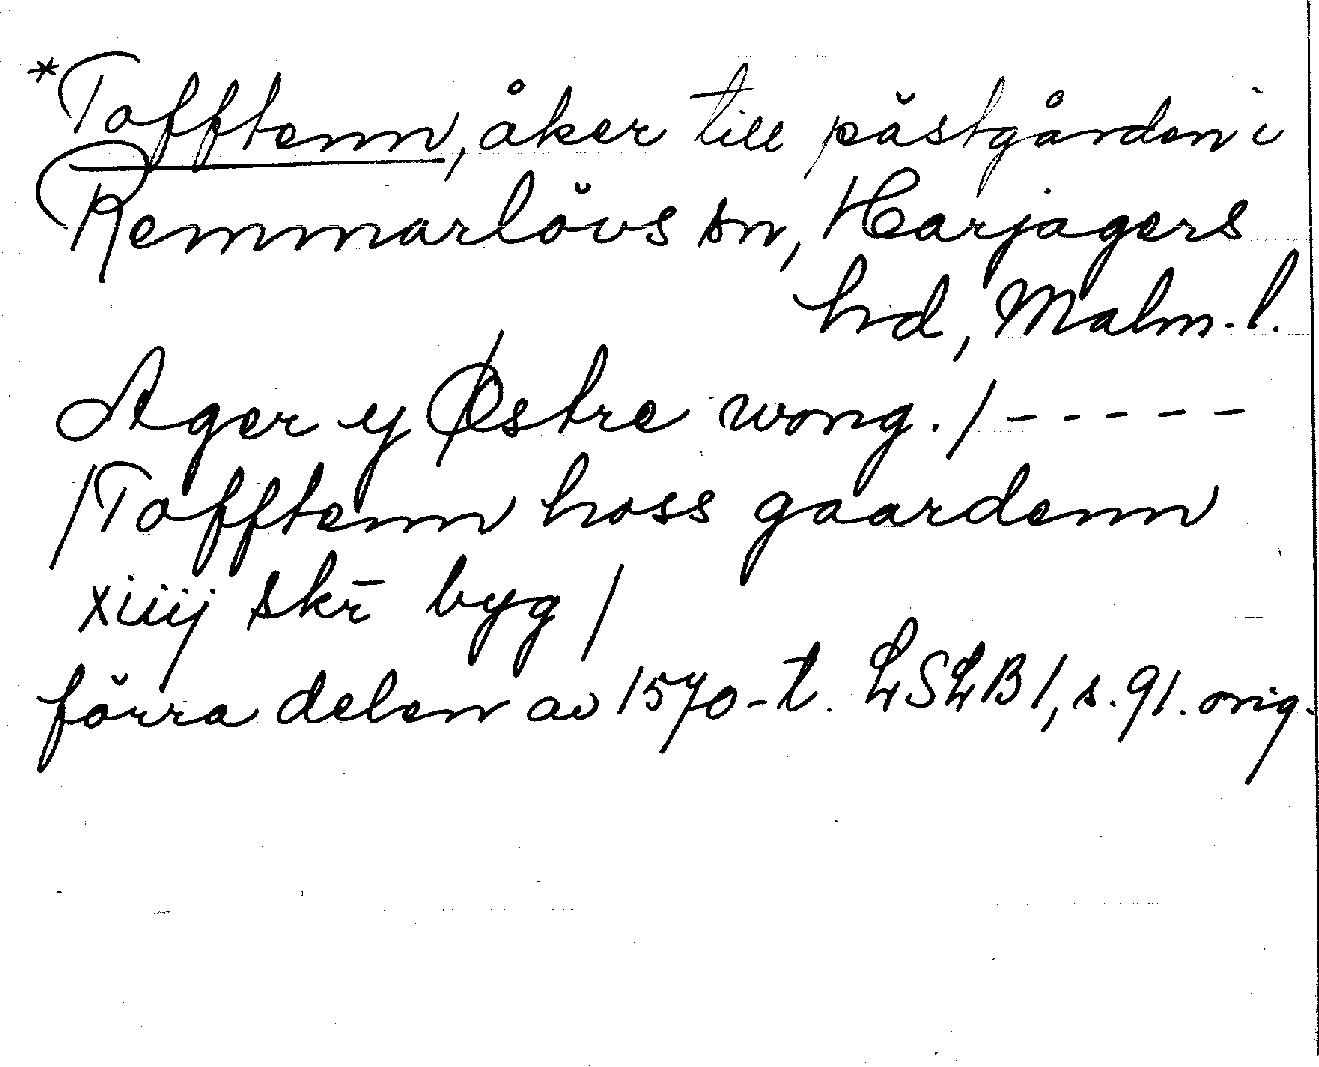 *Tofftenn, åker till pästgården i
Remmarlövs sn, Harjagers
hd, Malm. l.
Ager y Østre wong. / - - - - -
/ Tofftenn hoss gaardenn
xiiij skr̄ byg /
förra delen av 1570-t. LSLB 1, s. 91. orig.